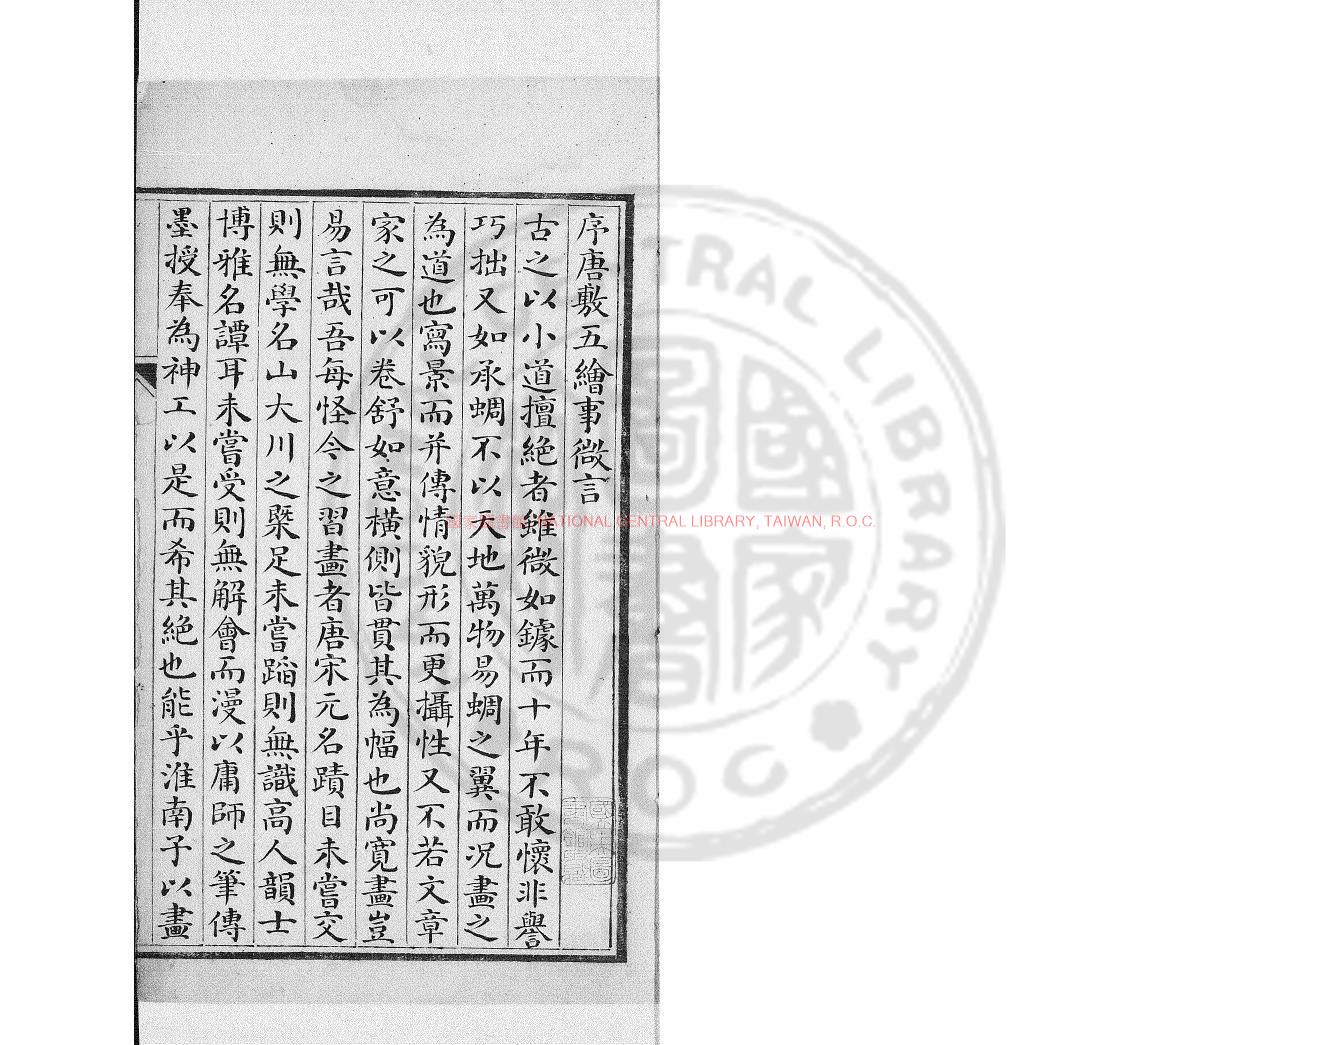 序唐敷五繪事微言
古之以小道擅絕者雖微如鐻而十年不敢懷非譽
巧拙又如承蜩不以天地萬物易蜩之翼而况畫之
為道也寫景而并傳情貌形而更攝性又不若文章
家之可以卷舒如意橫側皆貫其為幅也尚寬畫豈
易言哉吾每怪今之習畫者唐宋元名蹟目未嘗交
則無學名山大川之槩足未嘗蹈則無識高人韻士
博雅名譚耳未嘗受則無解會而漫以庸師之筆傳
墨授奉為神工以是而希其絕也能乎淮南子以畫
NATIONAL CENTRAL LIBRARY, TAIWAN, R.O.C.